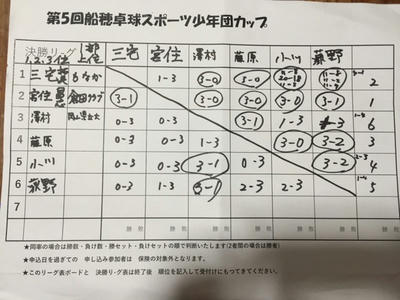 第5回船穂卓球スポーツ少年団カップ
決勝リーグ 1,2,3位 上位 三宅 宮住 澤村 藤原 小川 萩野
1 三宅 もなか 1-3 3-0 3-0 2
2 宮住 倉田クラブ 3-1 3-0 3-0 3-0 3-1 1
3 澤村 0-3 0-3 3-1 1-3 -3 6
4 藤原 0-3 0-3 1-3 3-0 3-2 3
5 小川 0-3 0-3 3-1 0-3 3-2 4
6 萩野 0-3 1-3 3-1 2-3 2-3 5
7
勝 敗 勝 敗 勝 敗 勝 敗 勝 敗 勝 敗 勝 敗
★同率の場合は勝数・負け数・勝セット・負けセットの順で判断いたします(2者間の場合は勝者)
★申込日を過ぎての 申し込み参加者は 保険の対象外となります。
★このリーグ表ボードと 決勝リーグ表は終了後 順位を記入して受付けにもってきてください。